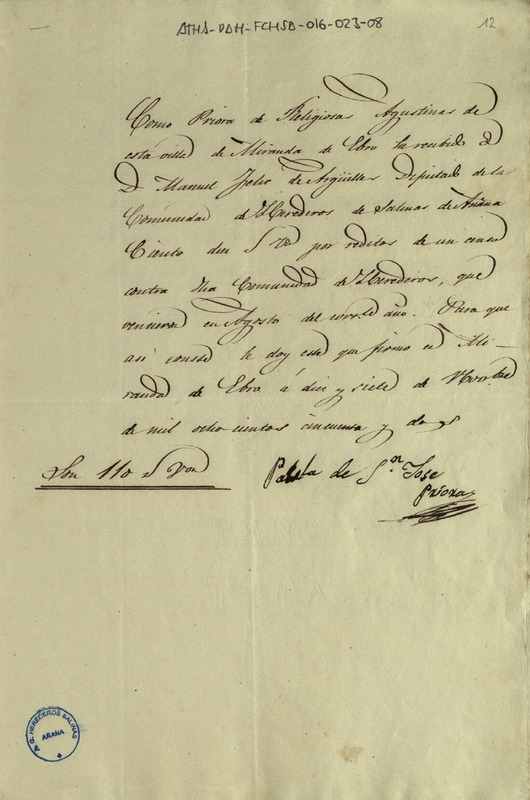 ATHA-DAH-FCHSA-016-023-08
12
Como Priora de Religiosas Agustinas de
esta villa de Miranda de Ebro he recibido de
D. Manuel Julio de Argüelles Diputado de la
Comunidad de Herederos de Salinas de Añana
Ciento diez rs von por reditos de un censo
contra dha Comunidad de Herederos, que
vencieron en Agosto del corrte año. Para que
asi conste le doy este que firmo en Mi-
randa de Ebro á diez y siete de Novbre
de mil ocho cientos cincuenta y dos
Son 110 rs von
de Sn. Jose
Priora
HEREDEROS SALINAS
AÑANA